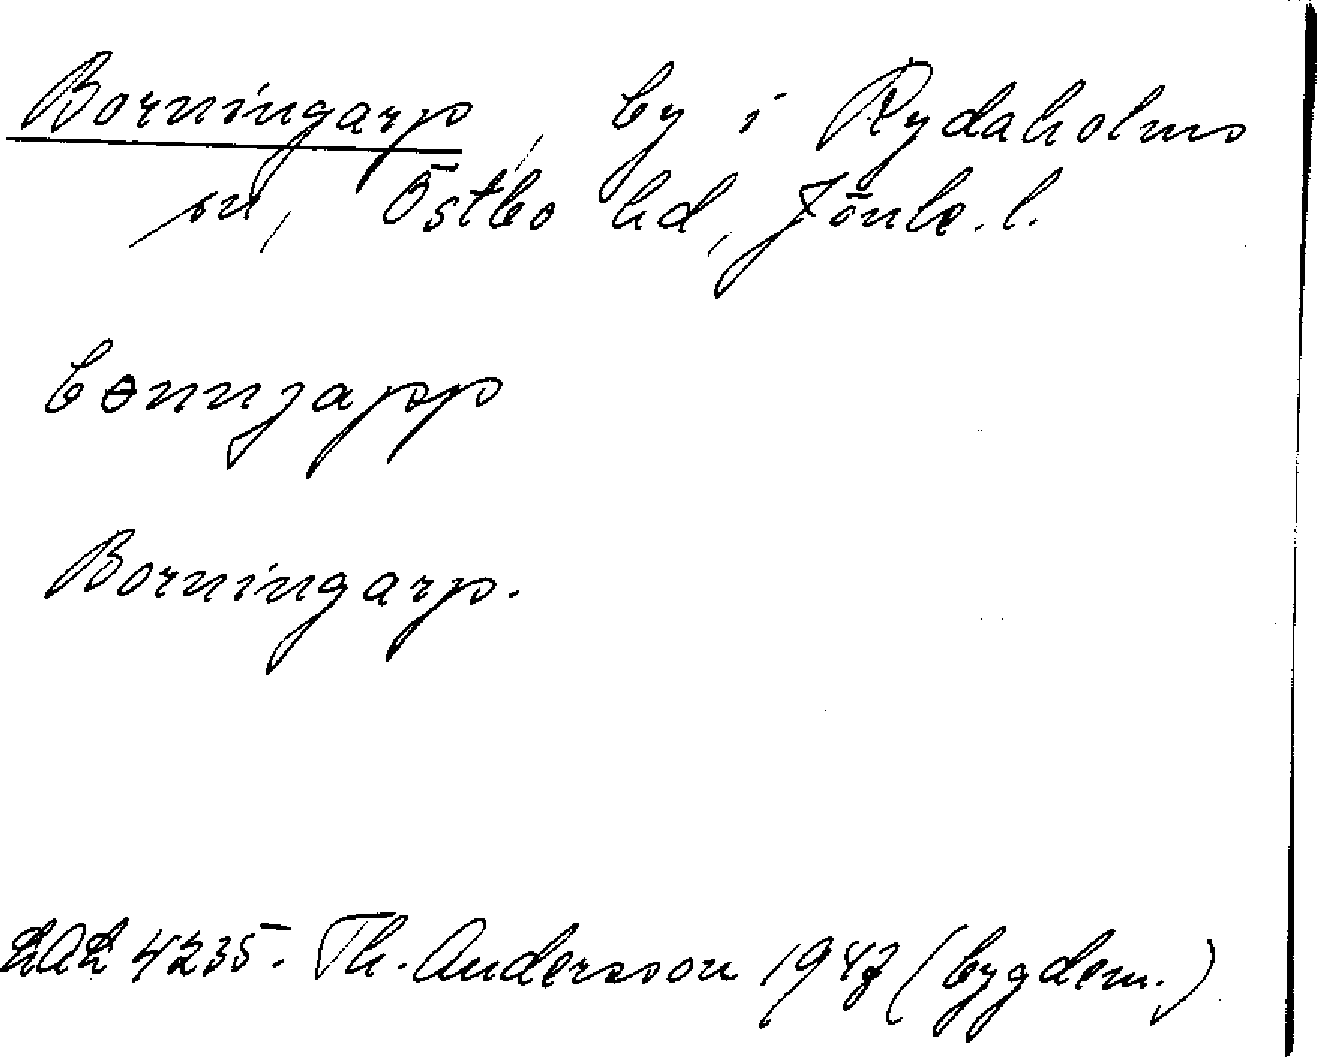 Borningarp, by i Rydaholms
sn, Östbo hd, Jönk. l.
bɵnnjapp
Borningarp.
LAL 4235. Th. Andersson 1947 (bygdem.)